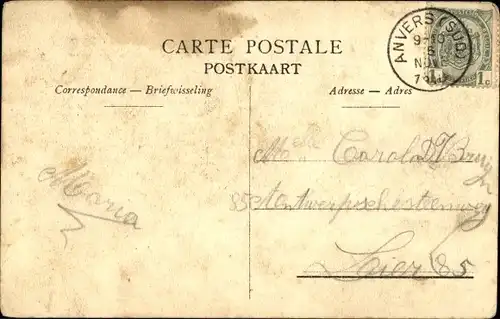 CARTE POSTALE
POSTKAART
Correspondance — Briefwisseling
Adresse — Adres
ANVERS (SUD)
NOV
1c
Maria
Carola
85 Antwerpschesteenweg
Lier 85